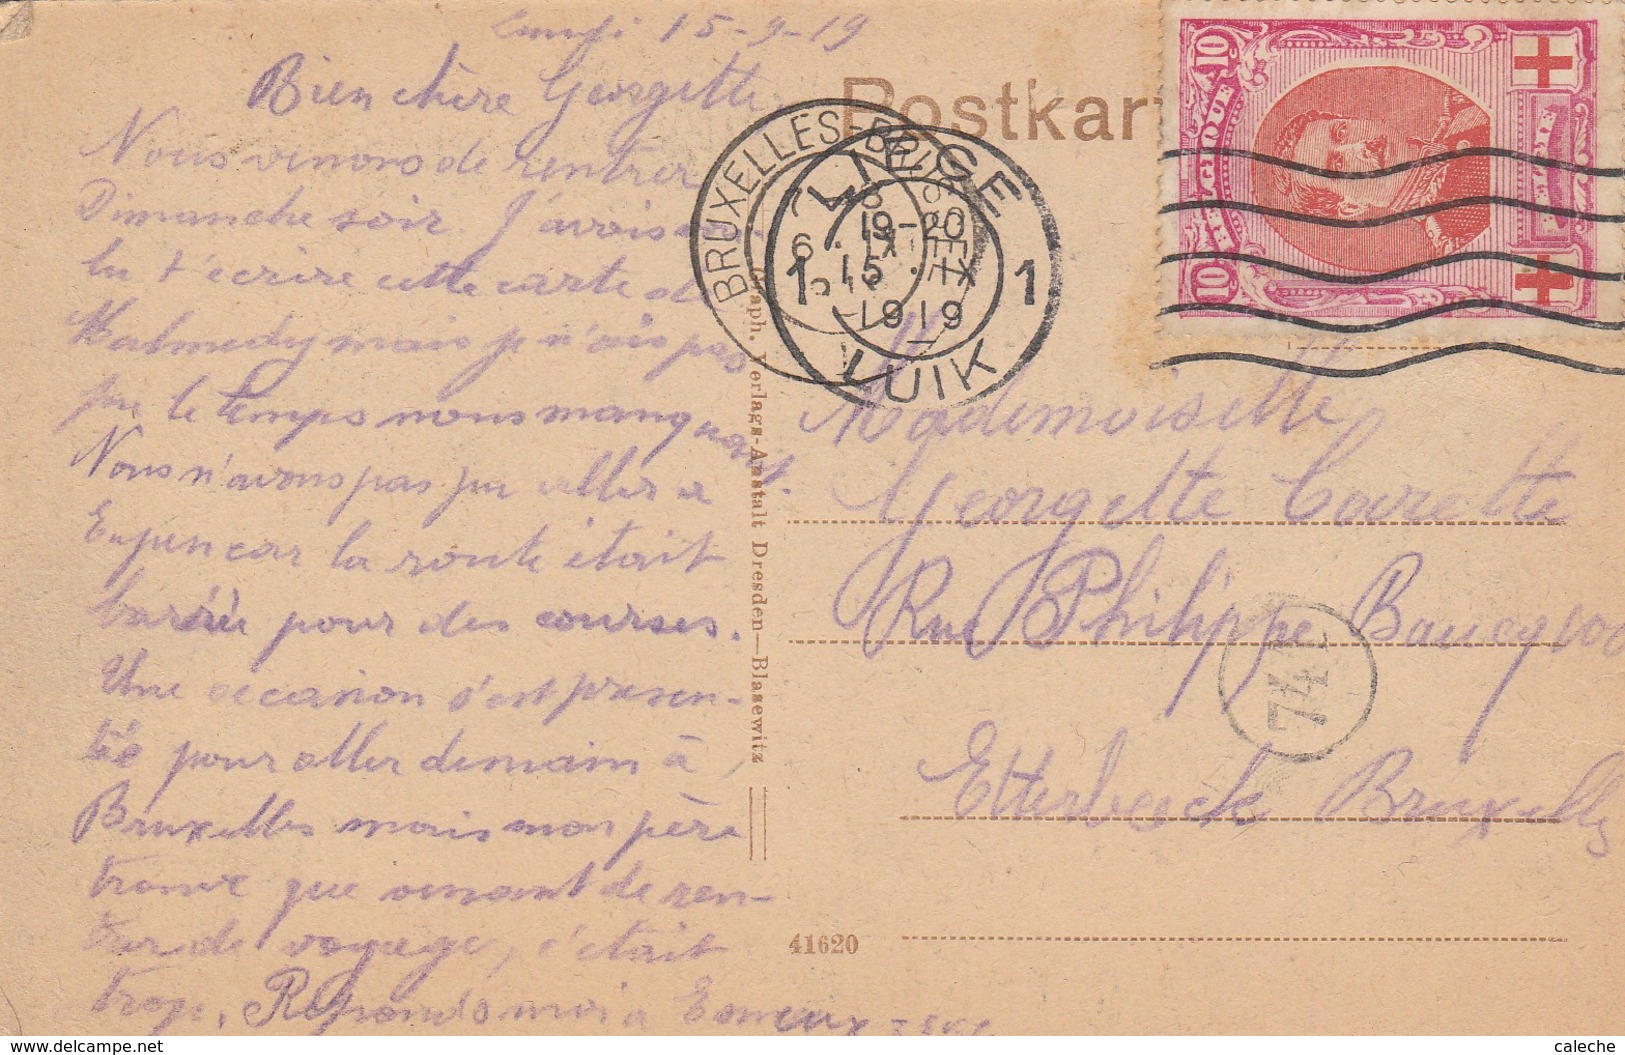 Lundi 15-9-19
Bien chère Georgette,
Nous venons de rentrer
Dimanche soir. J'avais vou-
lu t'écrire cette carte de
Malmedy mais je n'ais pas
pu le temps nous manquait.
Nous n'avons pas pu aller a
Eupen car la route était
barrée pour des courses.
Une occasion s'est presen-
tée pour aller demain à
Bruxelles mais mon père
trouve que venant de ren-
trer de voyage, c'était
trop. Reponds moi a Esneux
Postkar
BRUXELLES
BRUSSEL
LIEGE
1 1
19-20
15
IX
1919
LUIK
10
10
Graph. Verlags-Anstalt Dresden—Blasewitz
Mademoiselle
Georgette
Rue Philippe Baucq 100
Etterbeeck Bruxelles
41620
delcampe.net
caleche